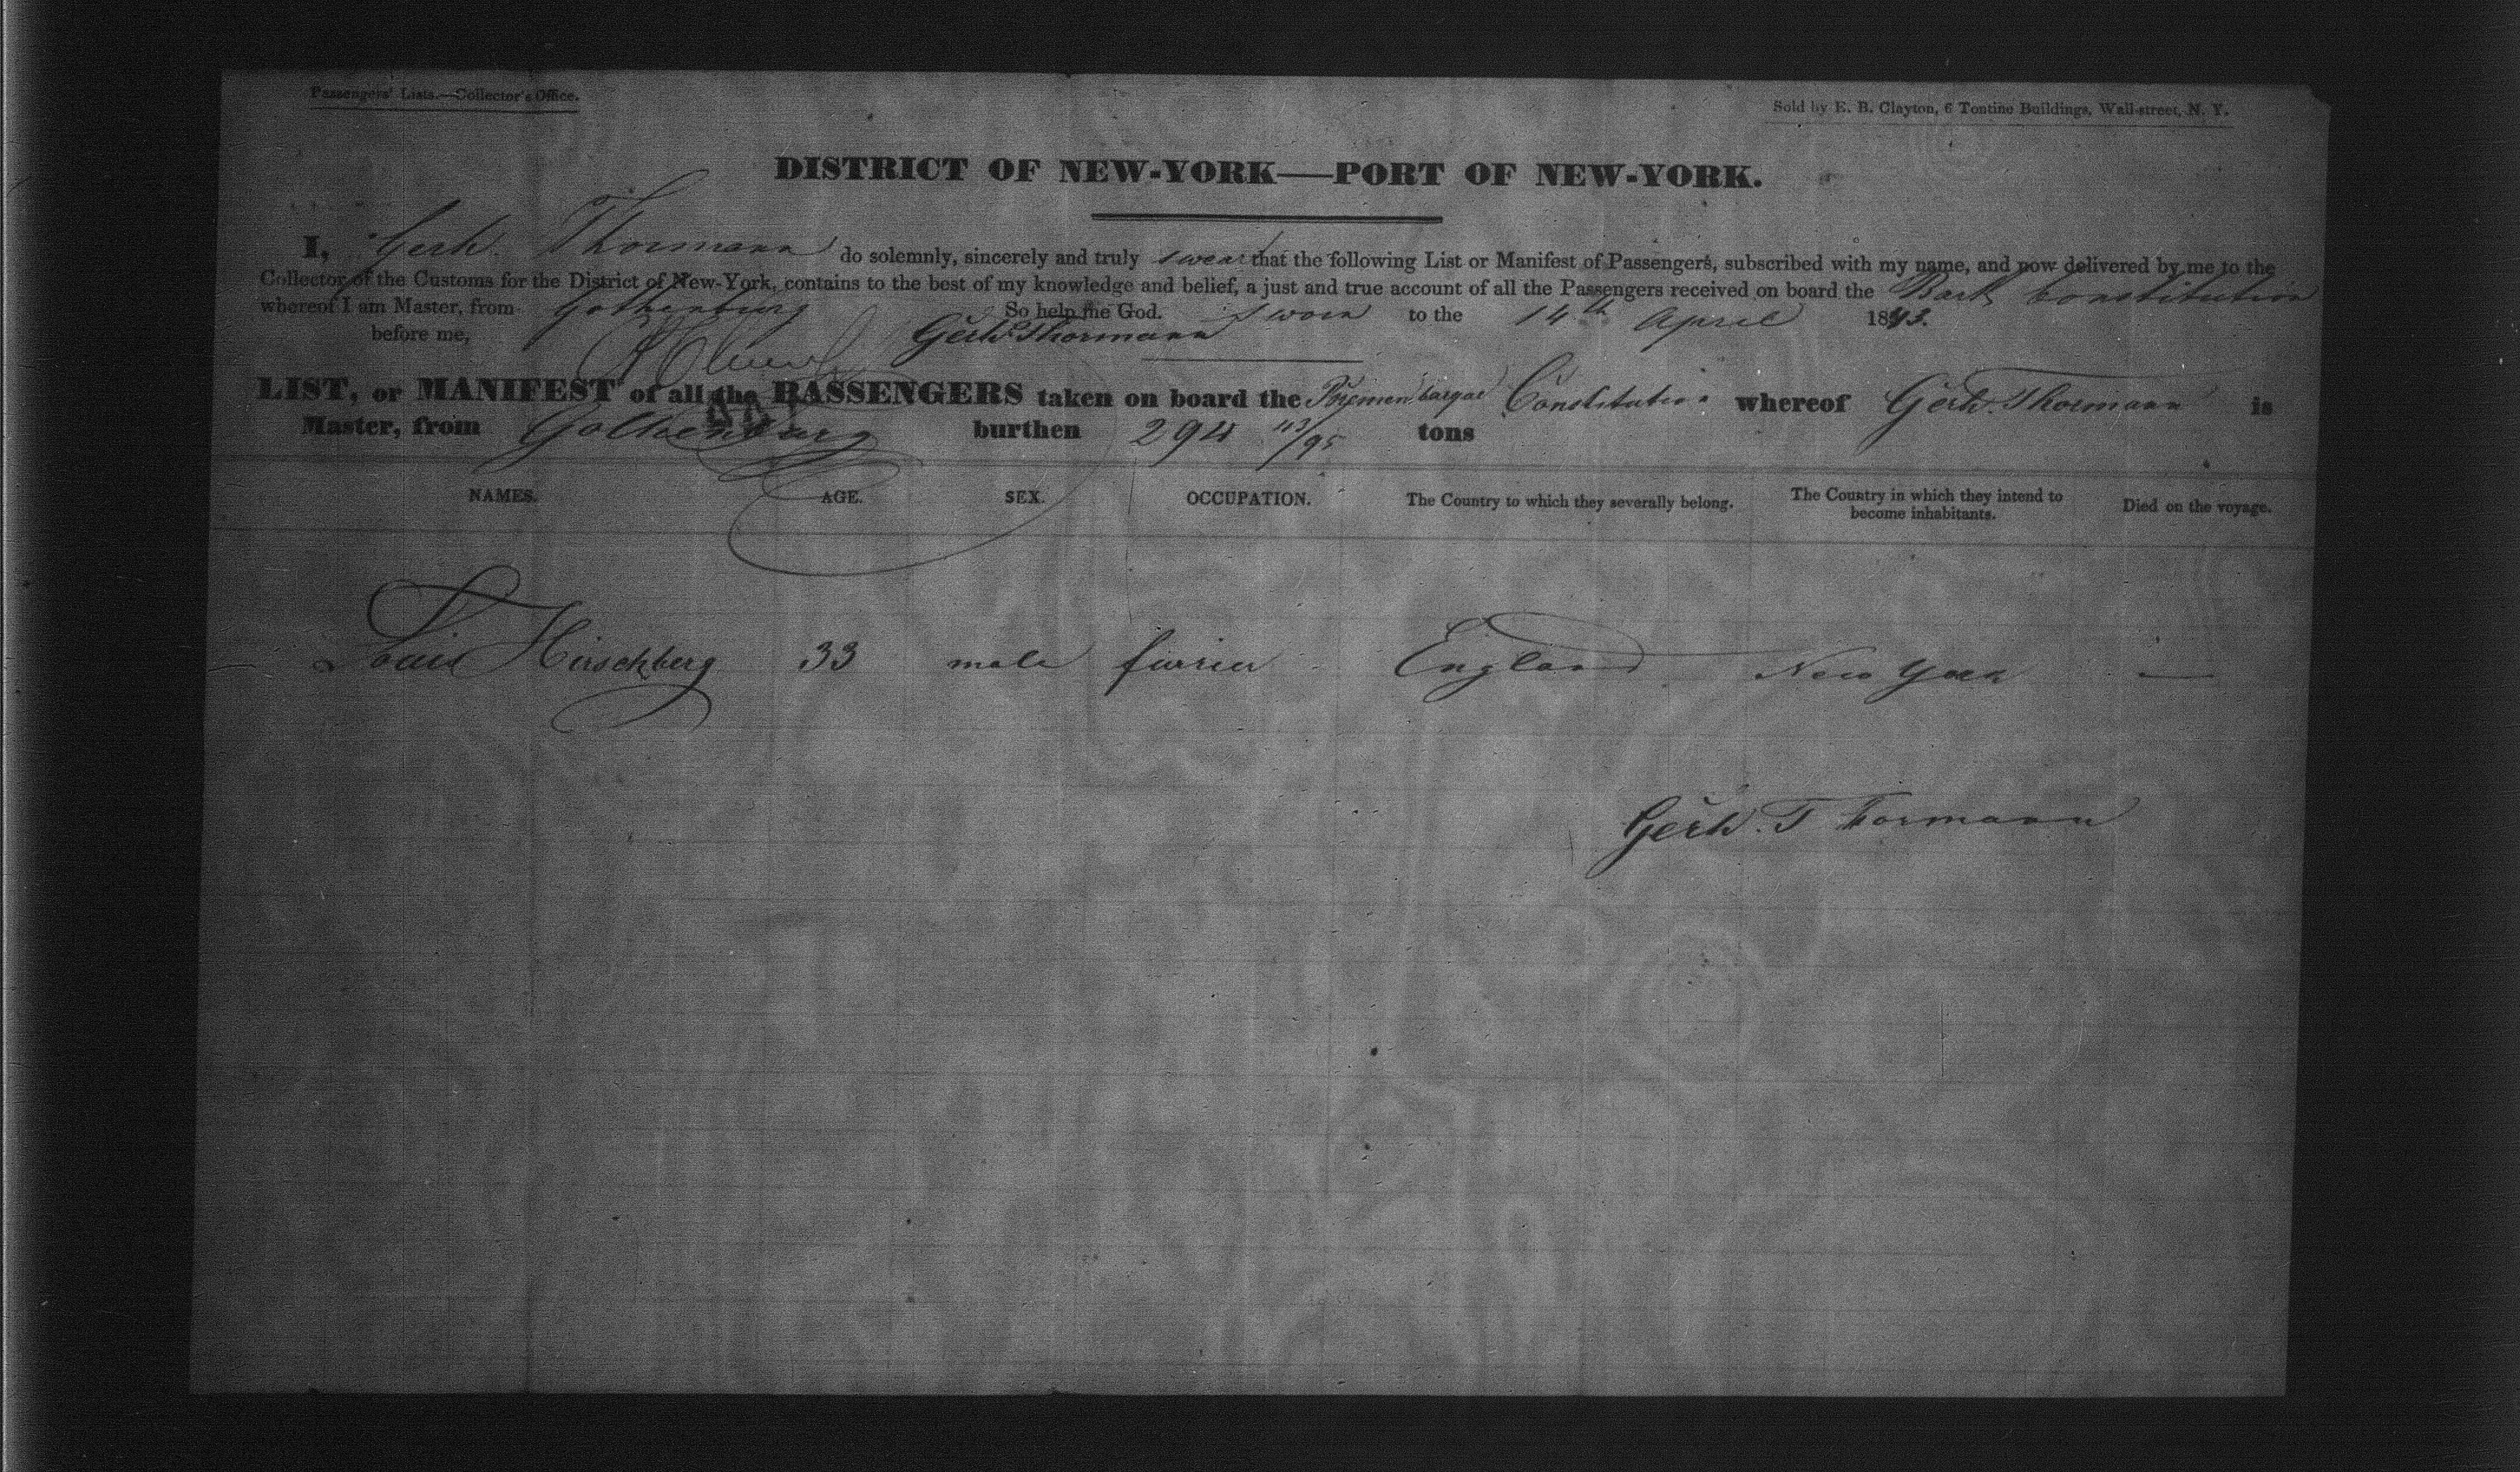 Passengers' Lists.—Collector's Office.
Sold by E. B. Clayton, 6 Tontine Buildings, Wall-street, N. Y.
DISTRICT OF NEW-YORK——PORT OF NEW-YORK.
I, Gerh. Thormann do solemnly, sincerely and truly swear that the following List or Manifest of Passengers, subscribed with my name, and now delivered by me to the
Collector of the Customs for the District of New-York, contains to the best of my knowledge and belief, a just and true account of all the Passengers received on board the Bark Constitution
whereof I am Master, from Gothenburg So help me God. Sworn to the 14th April 1843.
before me, Gerh. Thormann
LIST, or MANIFEST of all the PASSENGERS taken on board the Bremen barque Constitution whereof Gerh. Thormann is
Master, from Gothenburg burthen 294 43/95 tons
NAMES. AGE. SEX. OCCUPATION. The Country to which they severally belong. The Country in which they intend to become inhabitants. Died on the voyage.
Louis Hirschberg 33 male furrier England New York —
Gerh. Thormann